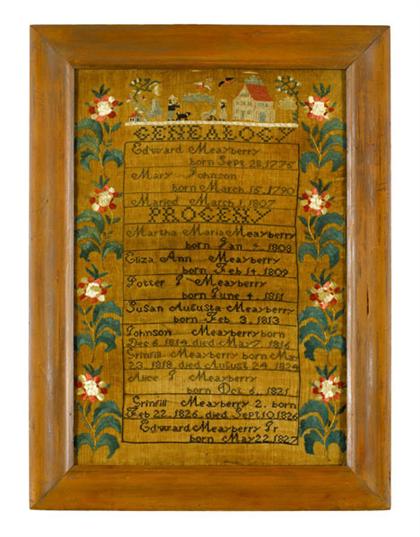 GENEALOGY
Edward Meayberry
born Sept. 28, 1775
Mary Johnson
born March 15, 1790
Maried March 1, 1807
PROGENY
Martha Maria Meayberry
born Jan 1808
Eliza Ann Meayberry
born Feb 14, 1809
Potter T Meayberry
born June 4, 1811
Susan Augusta Meayberry
born Feb 3, 1813
Johnson Meayberry born
Dec 6, 1814, died May 7, 1816
Grinfill Meayberry born May
23, 1818, died August 24, 1824
Alice Meayberry
born Oct 6, 1821
Grinfill Meayberry 2, born
Feb 22, 1826, died Sept 10 1826
Edward Meayberry Jr
born May 22, 1827